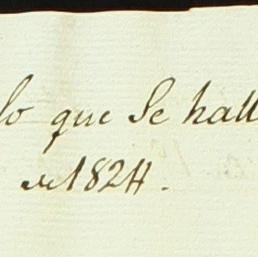 lo que Se hall
de 1824.